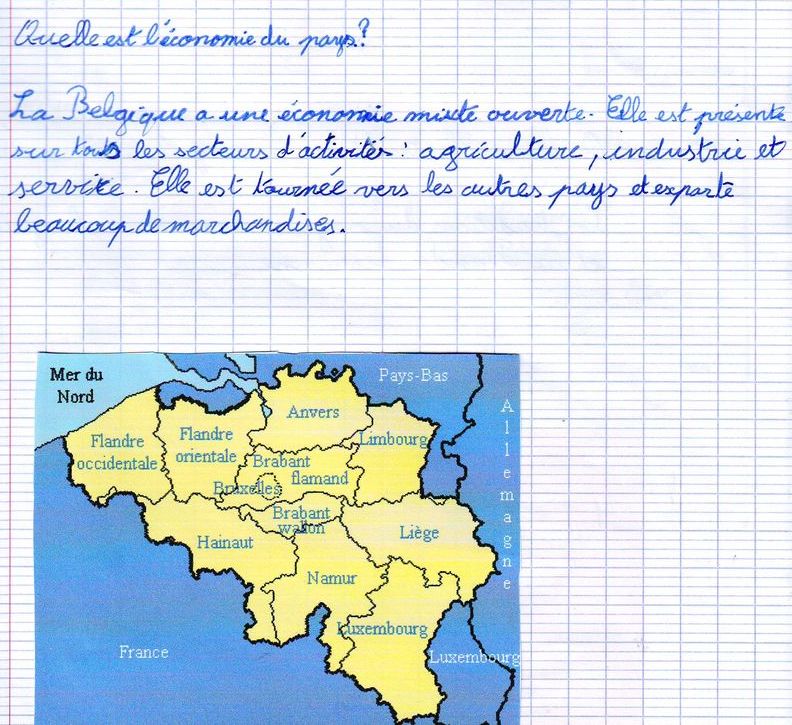 Quelle est l'économie du pays?
La Belgique a une économie mixte ouverte. Elle est présente
sur tous les secteurs d'activités : agriculture, industrie et
service. Elle est tournée vers les autres pays et exporte
beaucoup de marchandises.
Mer du
Nord
Pays-Bas
Allemagne
Anvers
Flandre
occidentale
Flandre
orientale
Limbourg
Brabant
flamand
Bruxelles
Brabant
wallon
Liège
Hainaut
Namur
Luxembourg
France
Luxembourg